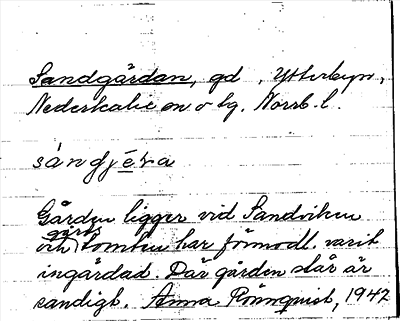 Sandgårdan, gd, Ytterbyn,
Nederkalix sn o tg. Norrb. l.
sángjε̄ra
Gården ligger vid Sandviken
och gårds tomten har förmodl. varit
ingärdad. Där gården står är
sandigt. Anna Rönnquist, 1942